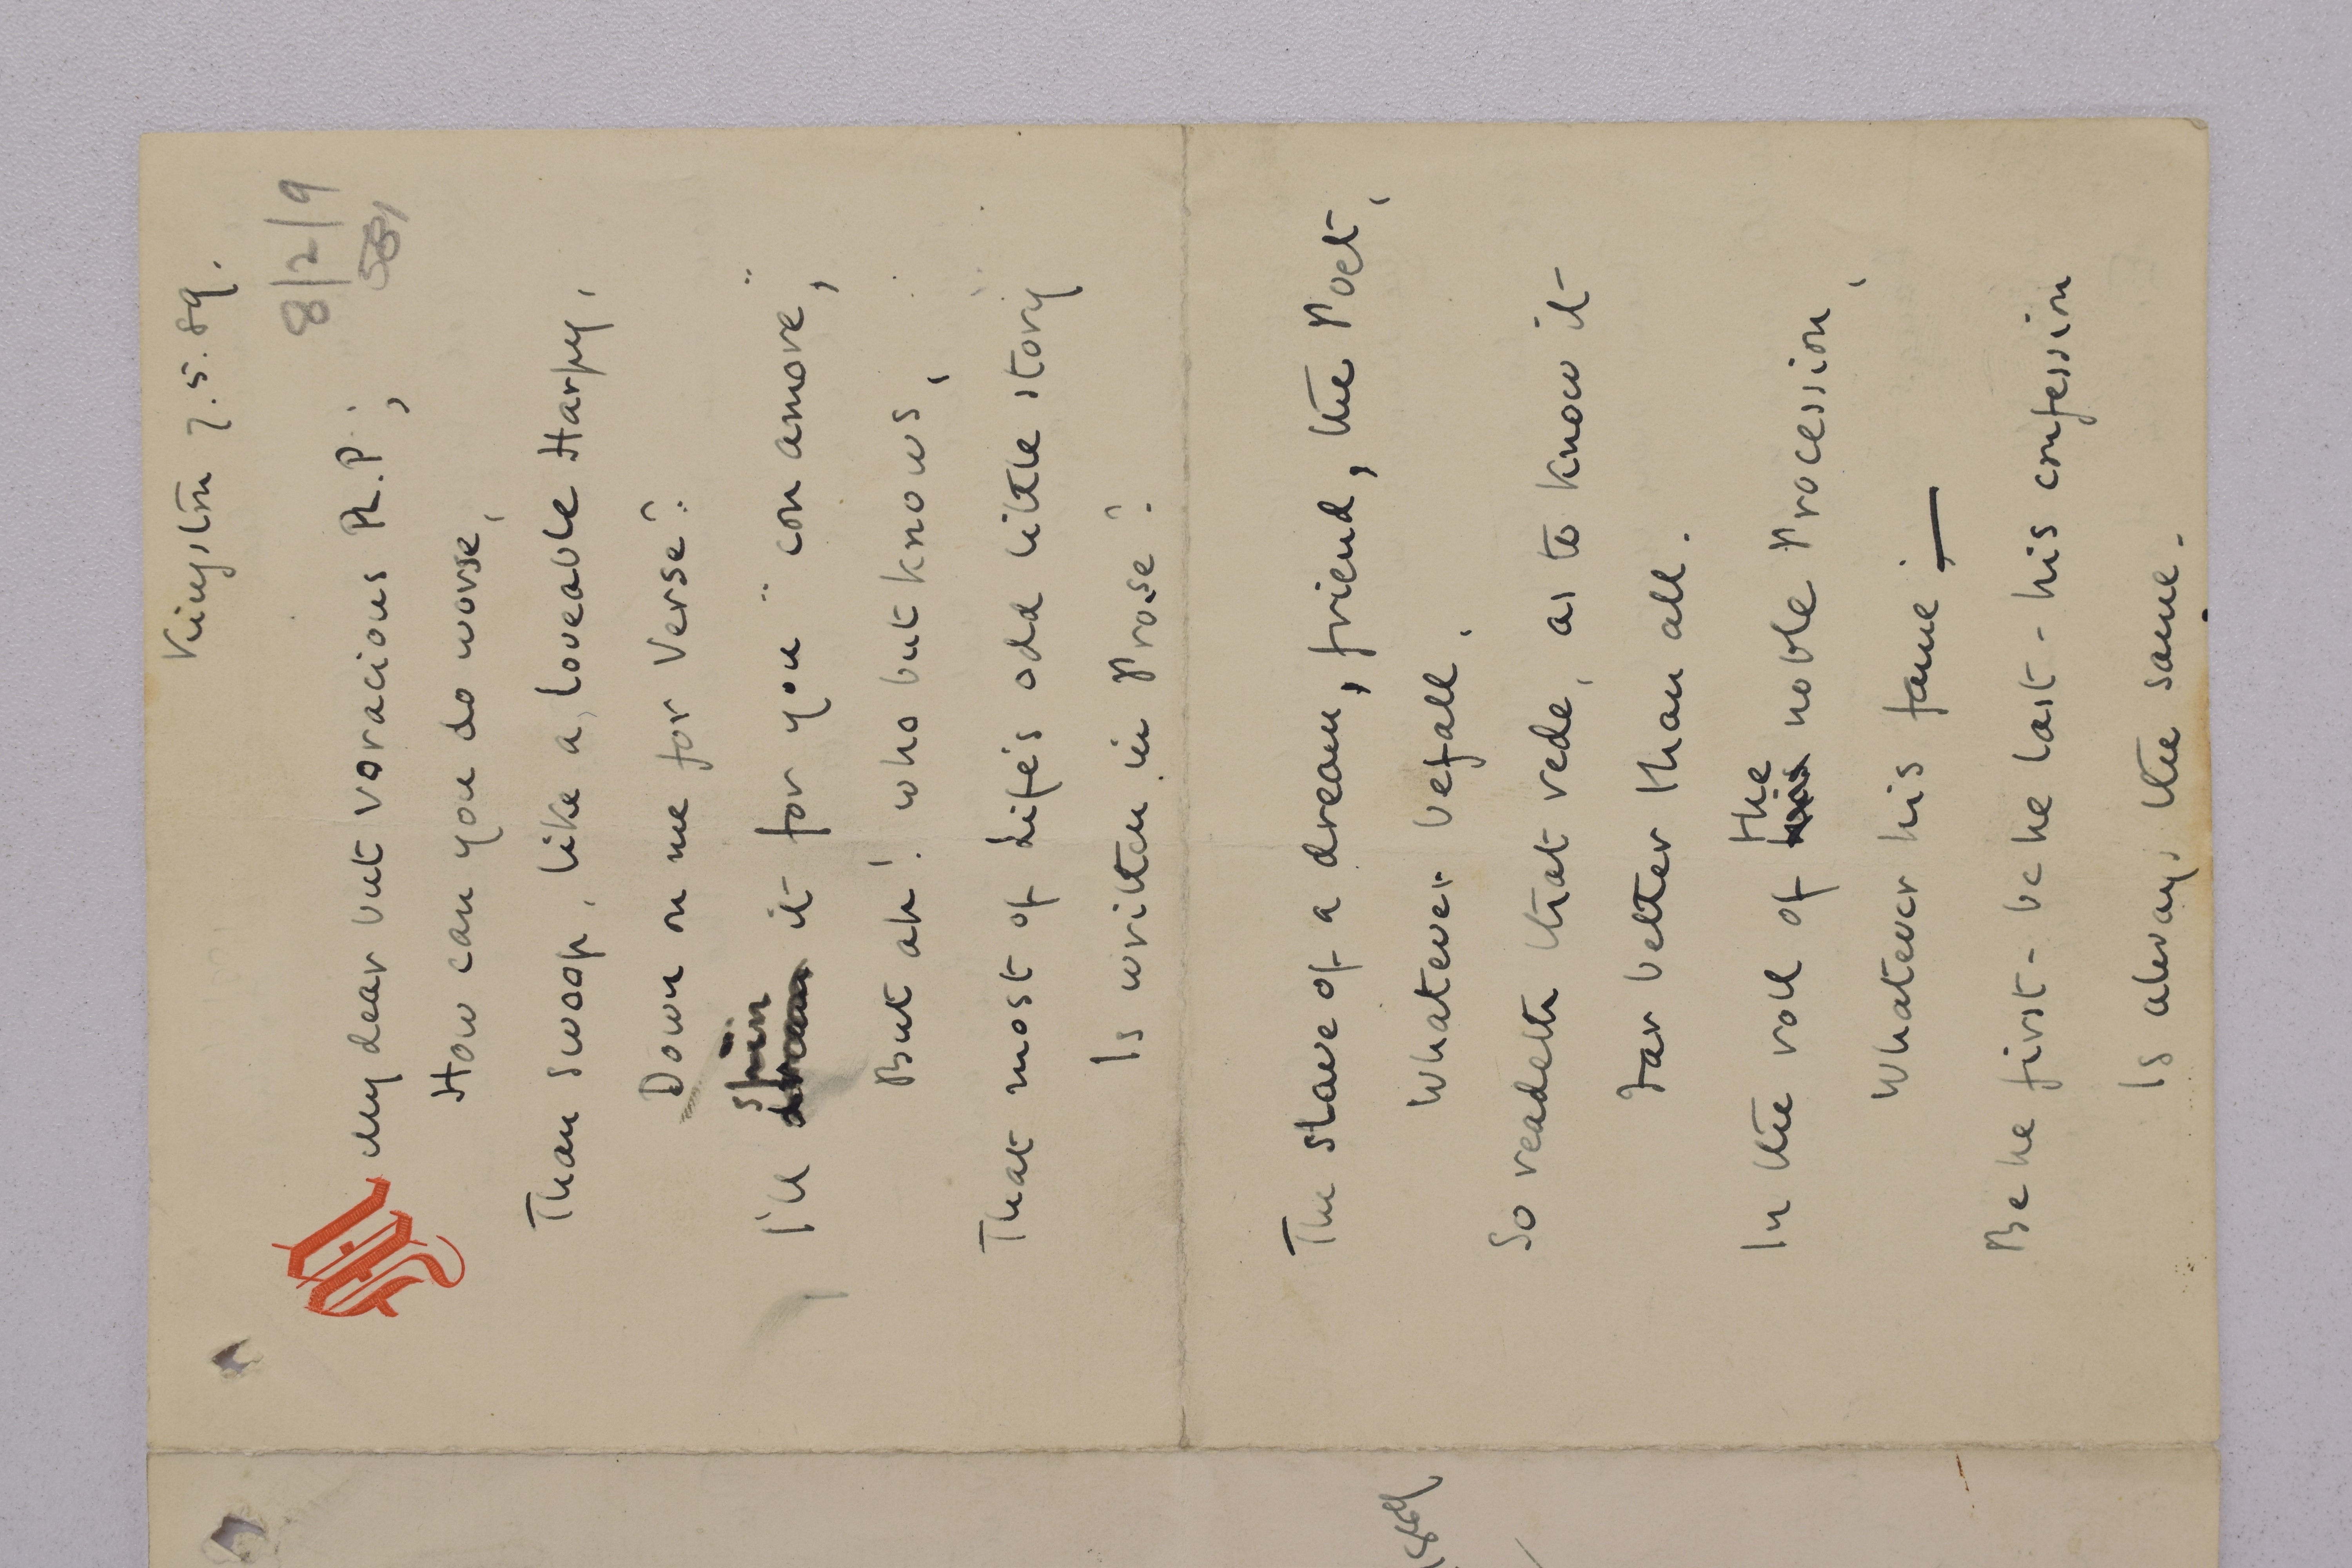 Kingston 7.5.89.
8/2/9
My dear but voracious R.P.;
How can you do worse,
Than swoop, like a, loveable Harpy,
Down on me for Verse?
spin
I'll dream it for you "con amore",
But ah! who but knows,
That most of Life's odd little story
Is written in Prose?
The slave of a dream, friend, the Poet,
Whatever befall.
So readeth that rede, as to know it
Far better than all.
the
In the roll of his noble Procession,
Whatever his fame; —
Be he first - be he last - his confession
Is always the same.